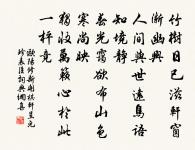 竹樹日已滋軒窗
漸幽興
人間與世遠鳥語
知境靜
春光靄欲布山色
寒尚映
獨收萬籟心於此
一枰競
歐陽修新開棋軒呈元
珍表臣詞典網